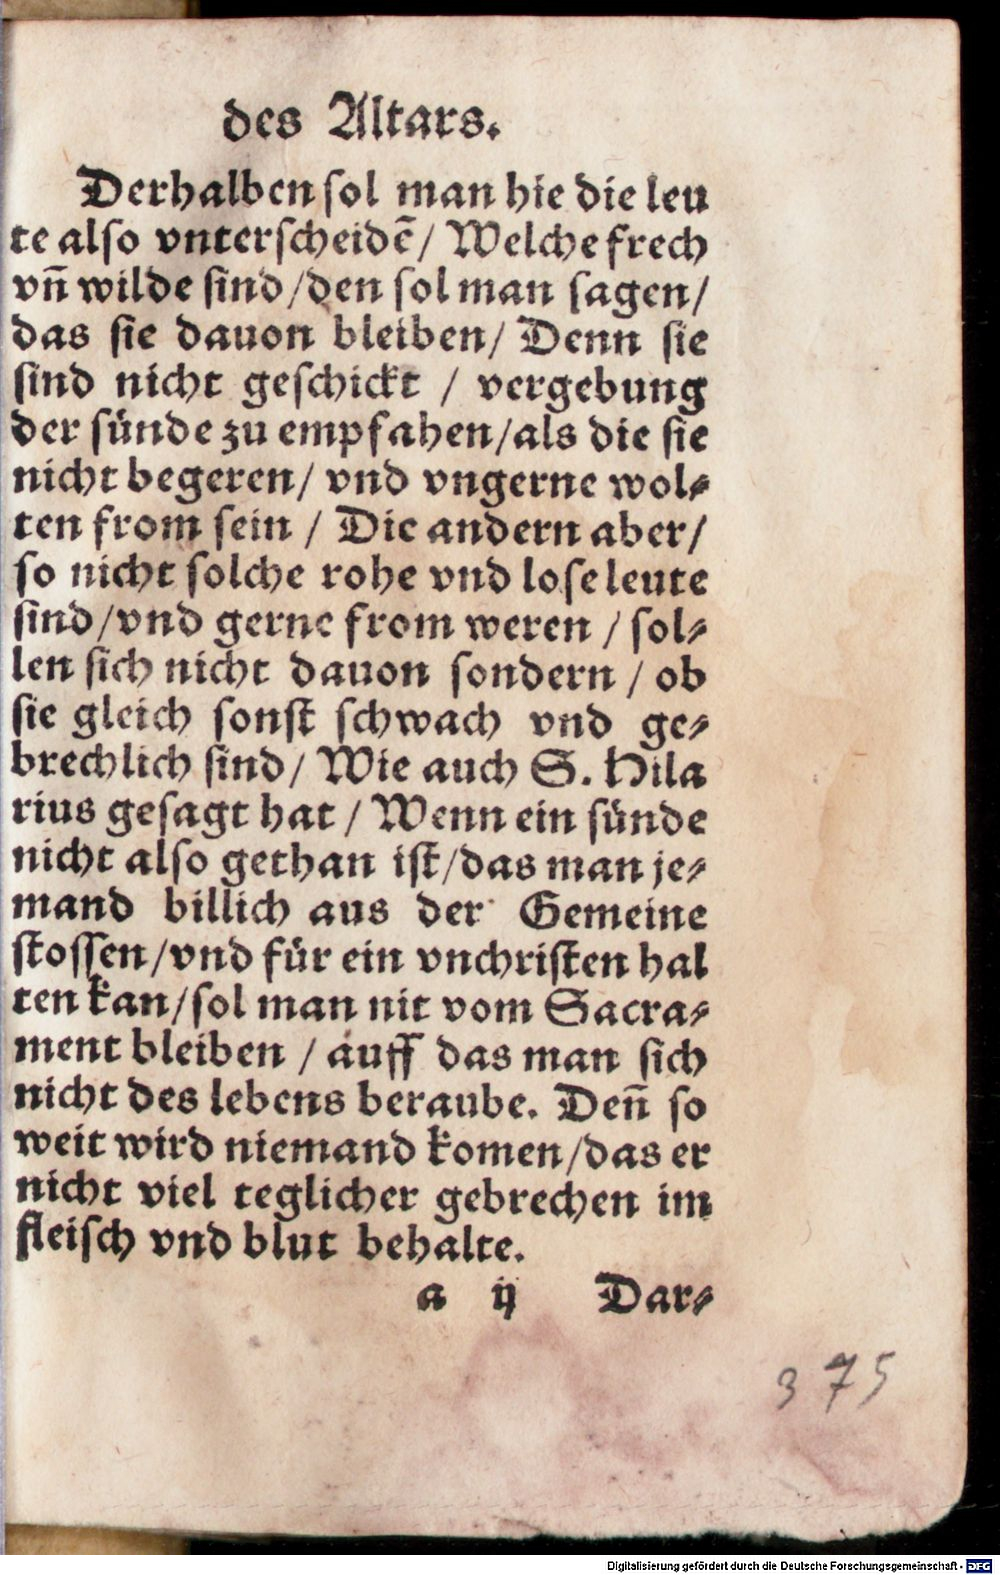 des Altars.
Derhalben sol man hie die leu
te also vnterscheidē/ Welche frech
vñ wilde sind/den sol man sagen/
das sie dauon bleiben/ Denn sie
sind nicht geschickt / vergebung
der sünde zu empfahen/als die sie
nicht begeren/ vnd vngerne wol⸗
ten from sein / Die andern aber/
so nicht solche rohe vnd lose leute
sind/vnd gerne from weren / sol⸗
len sich nicht dauon sondern / ob
sie gleich sonst schwach vnd ge⸗
brechlich sind/ Wie auch S. Hila
rius gesagt hat / Wenn ein sünde
nicht also gethan ist/das man je⸗
mand billich aus der Gemeine
stossen/vnd für ein vnchristen hal
ten kan/sol man nit vom Sacra⸗
ment bleiben / auff das man sich
nicht des lebens beraube. Deñ so
weit wird niemand komen/das er
nicht viel teglicher gebrechen im
fleisch vnd blut behalte.
a ij Dar⸗
375
Digitalisierung gefördert durch die Deutsche Forschungsgemeinschaft - DFG